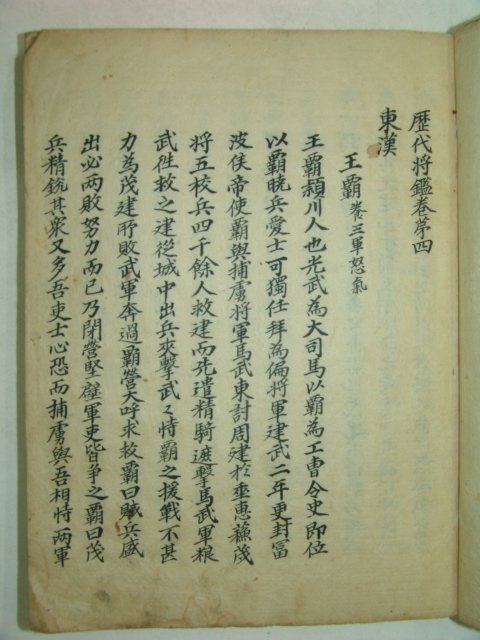 歴代将鑑卷苐四
東漢
王霸 養三軍怒氣
王霸潁川人也光武為大司馬以霸為工曹令史即位
以霸曉兵愛士可獨任拜為偏将軍建武二年更封冨
波侯帝使霸與捕虜将軍馬武東討周建於垂惠蘓茂
将五校兵四千餘人救建而先遣精騎遮擊馬武軍粮
武徃救之建從城中出兵夾擊武〻恃霸之援戰不甚
力為茂建所敗武軍奔過霸營大呼求救霸曰賊兵盛
出必两敗努力而已乃閉營堅壁軍吏皆争之霸曰茂
兵精銳其衆又多吾吏士心恐而捕虜與吾相恃两軍